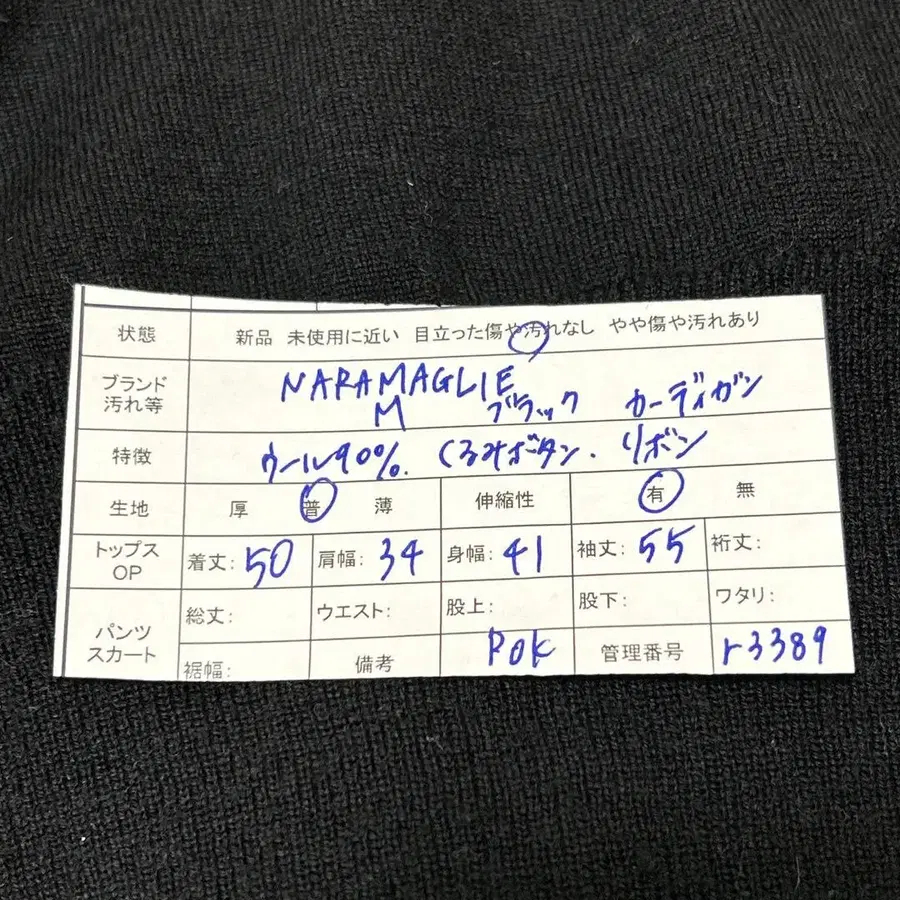 状態 新品 未使用に近い 目立った傷や汚れなし やや傷や汚れあり
ブランド NARAMAGLIE
汚れ等 M ブラック カーディガン
特徴 ウール90%. くるみボタン. リボン
生地 厚 普 薄 伸縮性 有 無
トップス OP 着丈: 50 肩幅: 34 身幅: 41 袖丈: 55 裄丈:
パンツ スカート 総丈: ウエスト: 股上: 股下: ワタリ:
裾幅: 備考 POK 管理番号 r3389